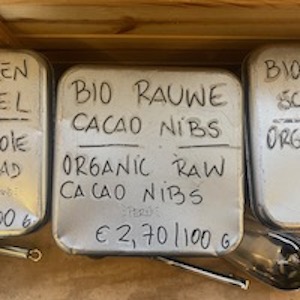 EN
EL
OIE
AD
00 G
BIO RAUWE
CACAO NIBS
ORGANIC RAW
CACAO NIBS
PERU
€ 2,70/100 G
BIO
ORG